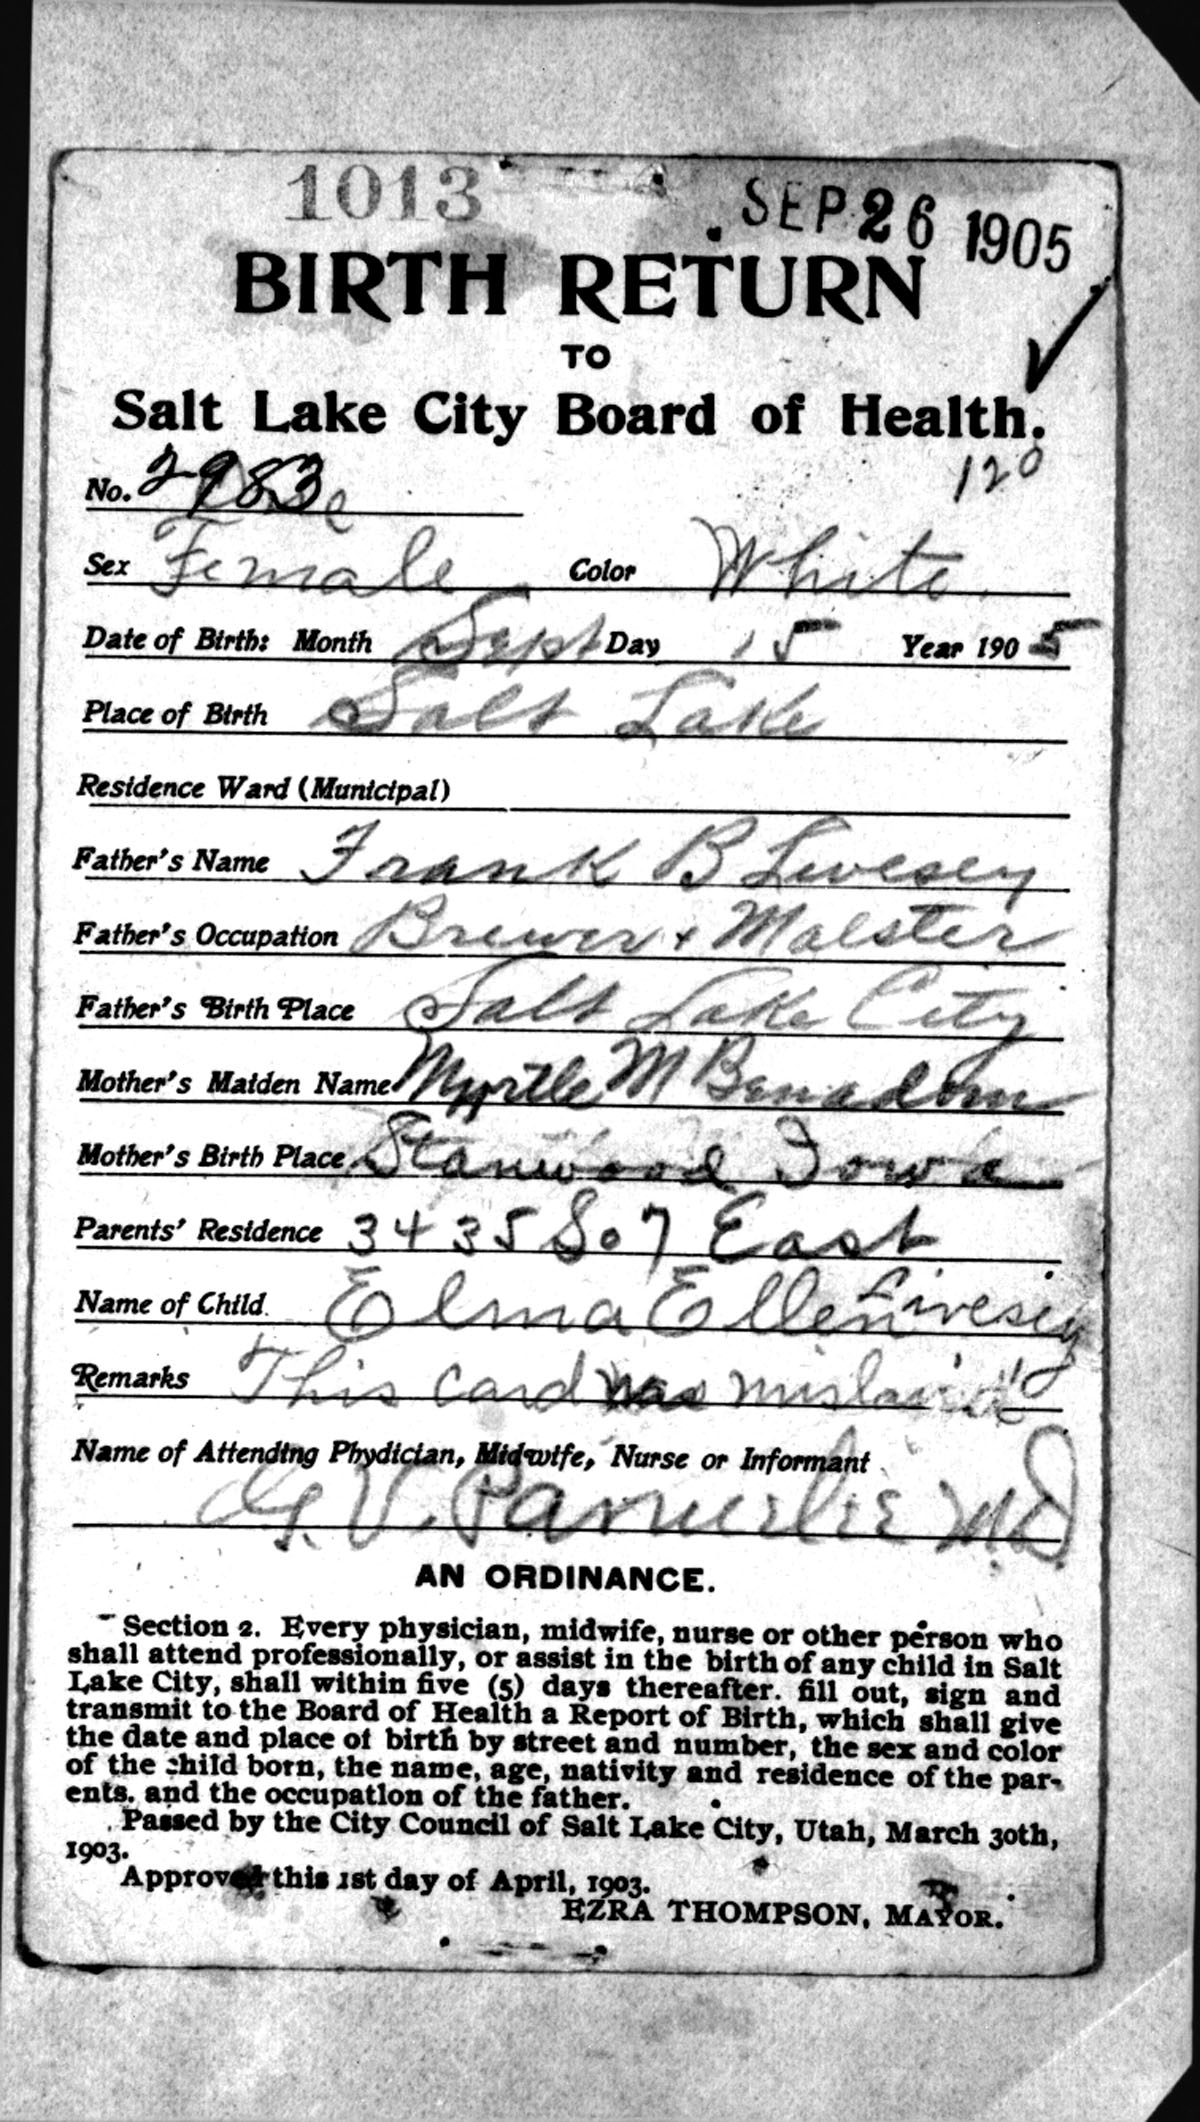 1013
SEP 26 1905
BIRTH RETURN
TO
Salt Lake City Board of Health.
120
No. 2983
Sex Female Color White
Date of Birth: Month Sept Day 15 Year 1905
Place of Birth Salt Lake
Residence Ward (Municipal)
Father's Name Frank B Livesey
Father's Occupation Brewer + Malster
Father's Birth Place Salt Lake City
Mother's Maiden Name Myrtle M Benadom
Mother's Birth Place Stanwood Iowa
Parents' Residence 3435 So 7 East
Name of Child Elma Ellen Livesey
Remarks This card was mislaid"
Name of Attending Phydician, Midwife, Nurse or Informant
G. V. Parmerlie M.D
AN ORDINANCE.
Section 2. Every physician, midwife, nurse or other person who
shall attend professionally, or assist in the birth of any child in Salt
Lake City, shall within five (5) days thereafter. fill out, sign and
transmit to the Board of Health a Report of Birth, which shall give
the date and place of birth by street and number, the sex and color
of the child born, the name, age, nativity and residence of the par-
ents. and the occupation of the father.
Passed by the City Council of Salt Lake City, Utah, March 30th,
1903.
Approved this 1st day of April, 1903.
EZRA THOMPSON, MAYOR.